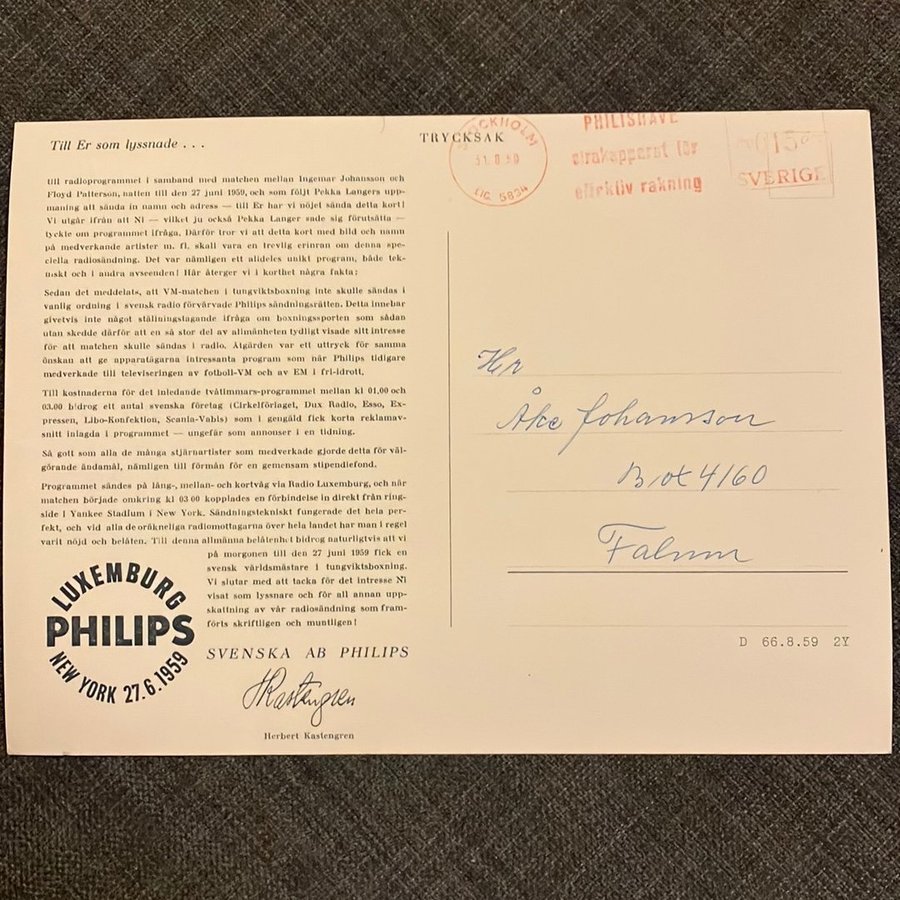 Till Er som lyssnade . . .
till radioprogrammet i samband med matchen mellan Ingemar Johansson och
Floyd Patterson, natten till den 27 juni 1959, och som följt Pekka Langers upp-
maning att sända in namn och adress — till Er har vi nöjet sända detta kort!
Vi utgår ifrån att Ni — vilket ju också Pekka Langer sade sig förutsätta —
tyckte om programmet ifråga. Därför tror vi att detta kort med bild och namn
på medverkande artister m. fl. skall vara en trevlig erinran om denna spe-
ciella radiosändning. Det var nämligen ett alldeles unikt program, både tek-
niskt och i andra avseenden! Här återger vi i korthet några fakta:
Sedan det meddelats, att VM-matchen i tungviktsboxning inte skulle sändas i
vanlig ordning i svensk radio förvärvade Philips sändningsrätten. Detta innebar
givetvis inte något ställningstagande ifråga om boxningssporten som sådan
utan skedde därför att en så stor del av allmänheten tydligt visade sitt intresse
för att matchen skulle sändas i radio. Åtgärden var ett uttryck för samma
önskan att ge apparatägarna intressanta program som när Philips tidigare
medverkade till televiseringen av fotboll-VM och av EM i fri-idrott.
Till kostnaderna för det inledande tvåtimmars-programmet mellan kl 01,00 och
03.00 bidrog ett antal svenska företag (Cirkelförlaget, Dux Radio, Esso, Ex-
pressen, Libo-Konfektion, Scania-Vabis) som i gengäld fick korta reklamav-
snitt inlagda i programmet — ungefär som annonser i en tidning.
Så gott som alla de många stjärnartister som medverkade gjorde detta för väl-
görande ändamål, nämligen till förmån för en gemensam stipendiefond.
Programmet sändes på lång-, mellan- och kortvåg via Radio Luxemburg, och när
matchen började omkring kl 03 00 kopplades en förbindelse in direkt från ring-
side i Yankee Stadium i New York. Sändningstekniskt fungerade det hela per-
fekt, och vid alla de oräkneliga radiomottagarna över hela landet har man i regel
varit nöjd och belåten. Till denna allmänna belåtenhet bidrog naturligtvis att vi
på morgonen till den 27 juni 1959 fick en
svensk världsmästare i tungviktsboxning.
Vi slutar med att tacka för det intresse Ni
visat som lyssnare och för all annan upp-
skattning av vår radiosändning som fram-
förts skriftligen och muntligen!
SVENSKA AB PHILIPS
HKastengren
Herbert Kastengren
LUXEMBURG
PHILIPS
NEW YORK 27.6.1959
TRYCKSAK
STOCKHOLM
LIC. 5834
PHILISHAVE
elrakapparat för
effektiv rakning
15
SVERIGE
Hr
Åke Johansson
Box 4160
Falun
D 66.8.59 2Y